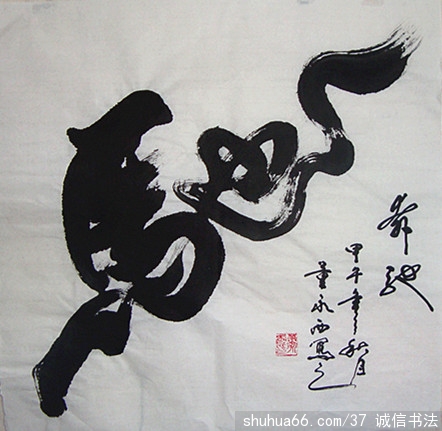 馳
奔馳
甲午年之秋月
董永西寫之
shuhua66.com/37 诚信书法